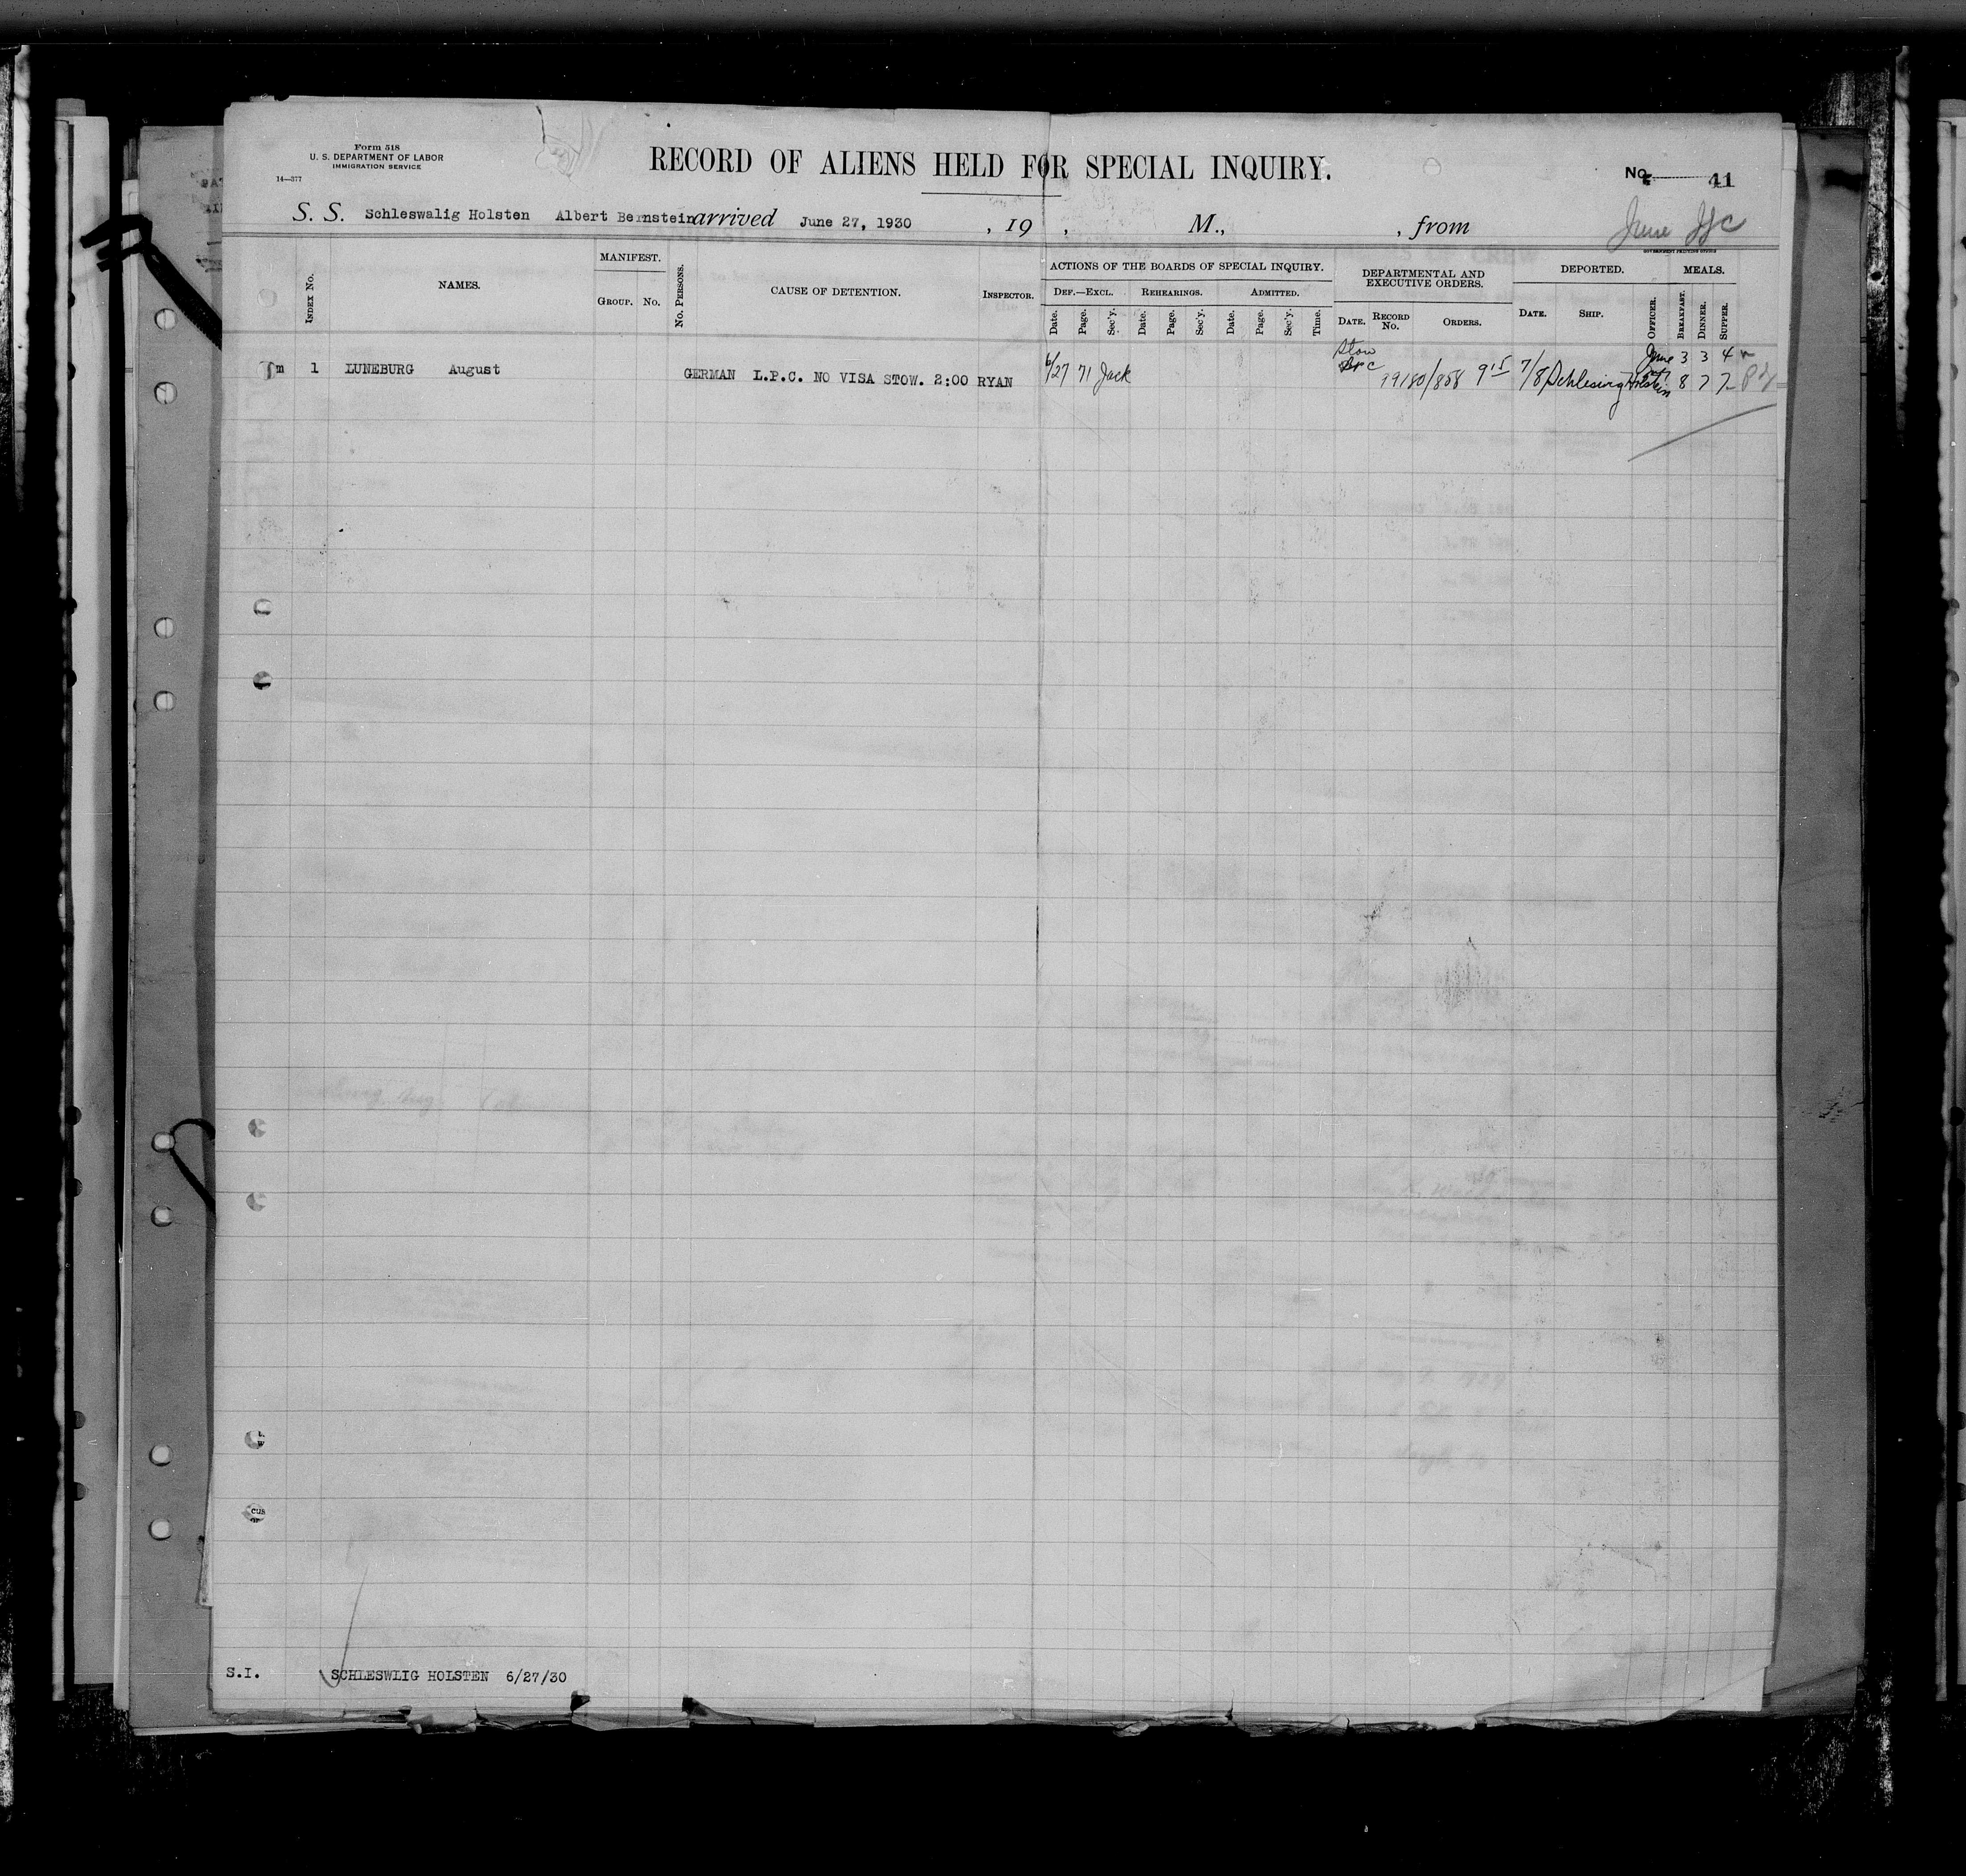 Form 518
U. S. DEPARTMENT OF LABOR
IMMIGRATION SERVICE
14—377
RECORD OF ALIENS HELD FOR SPECIAL INQUIRY.
No. 41
S. S. Schleswalig Holsten Albert Bernstein arrived June 27, 1930 , 19 , M., , from
June
GOVERNMENT PRINTING OFFICE
INDEX No.
NAMES.
MANIFEST.
GROUP. No.
No. PERSONS.
CAUSE OF DETENTION.
INSPECTOR.
ACTIONS OF THE BOARDS OF SPECIAL INQUIRY.
DEF.—EXCL. REHEARINGS. ADMITTED.
Date. Page. Sec'y. Date. Page. Sec'y. Date. Page. Sec'y. Time.
DEPARTMENTAL AND
EXECUTIVE ORDERS.
DATE. RECORD No. ORDERS.
DEPORTED.
DATE. SHIP. OFFICER.
MEALS.
BREAKFAST. DINNER. SUPPER.
Stow June 3 3 4
m 1 LUNEBURG August GERMAN L.P.C. NO VISA STOW. 2:00 RYAN 6/27 71 Jack 99180/858 915 7/8 Holstein 8 7 7
S.I. SCHLESWLIG HOLSTEN 6/27/30